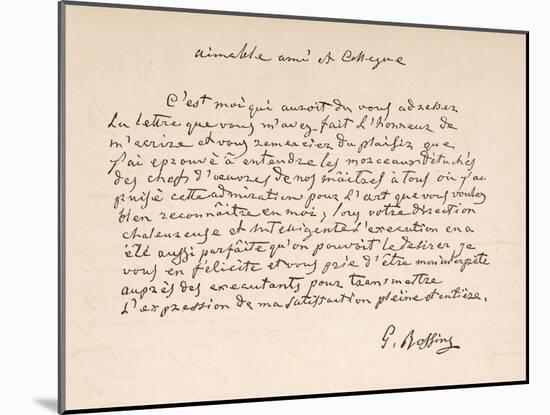 aimable ami et Collegue
C'est moi qui auroit du vous adresser
La lettre que vous m'avez fait L'honneur de
m'ecrire et vous remercier du plaisir que
j'ai eprouvé à entendre les morceaux détachés
des chefs d'oeuvres de nos maîtres à tous où j'ai
puisé cette admiration pour L'art que vous voulez
bien reconnaître en moi, sous votre direction
chaleureuse et Intelligente L'execution en a
été aussi parfaite qu'on pouvoit le desirer je
vous en félicite et vous prie d'être mon interprète
auprès des executants pour transmettre
L'expression de ma Satisfaction pleine et entière.
G. Rossini